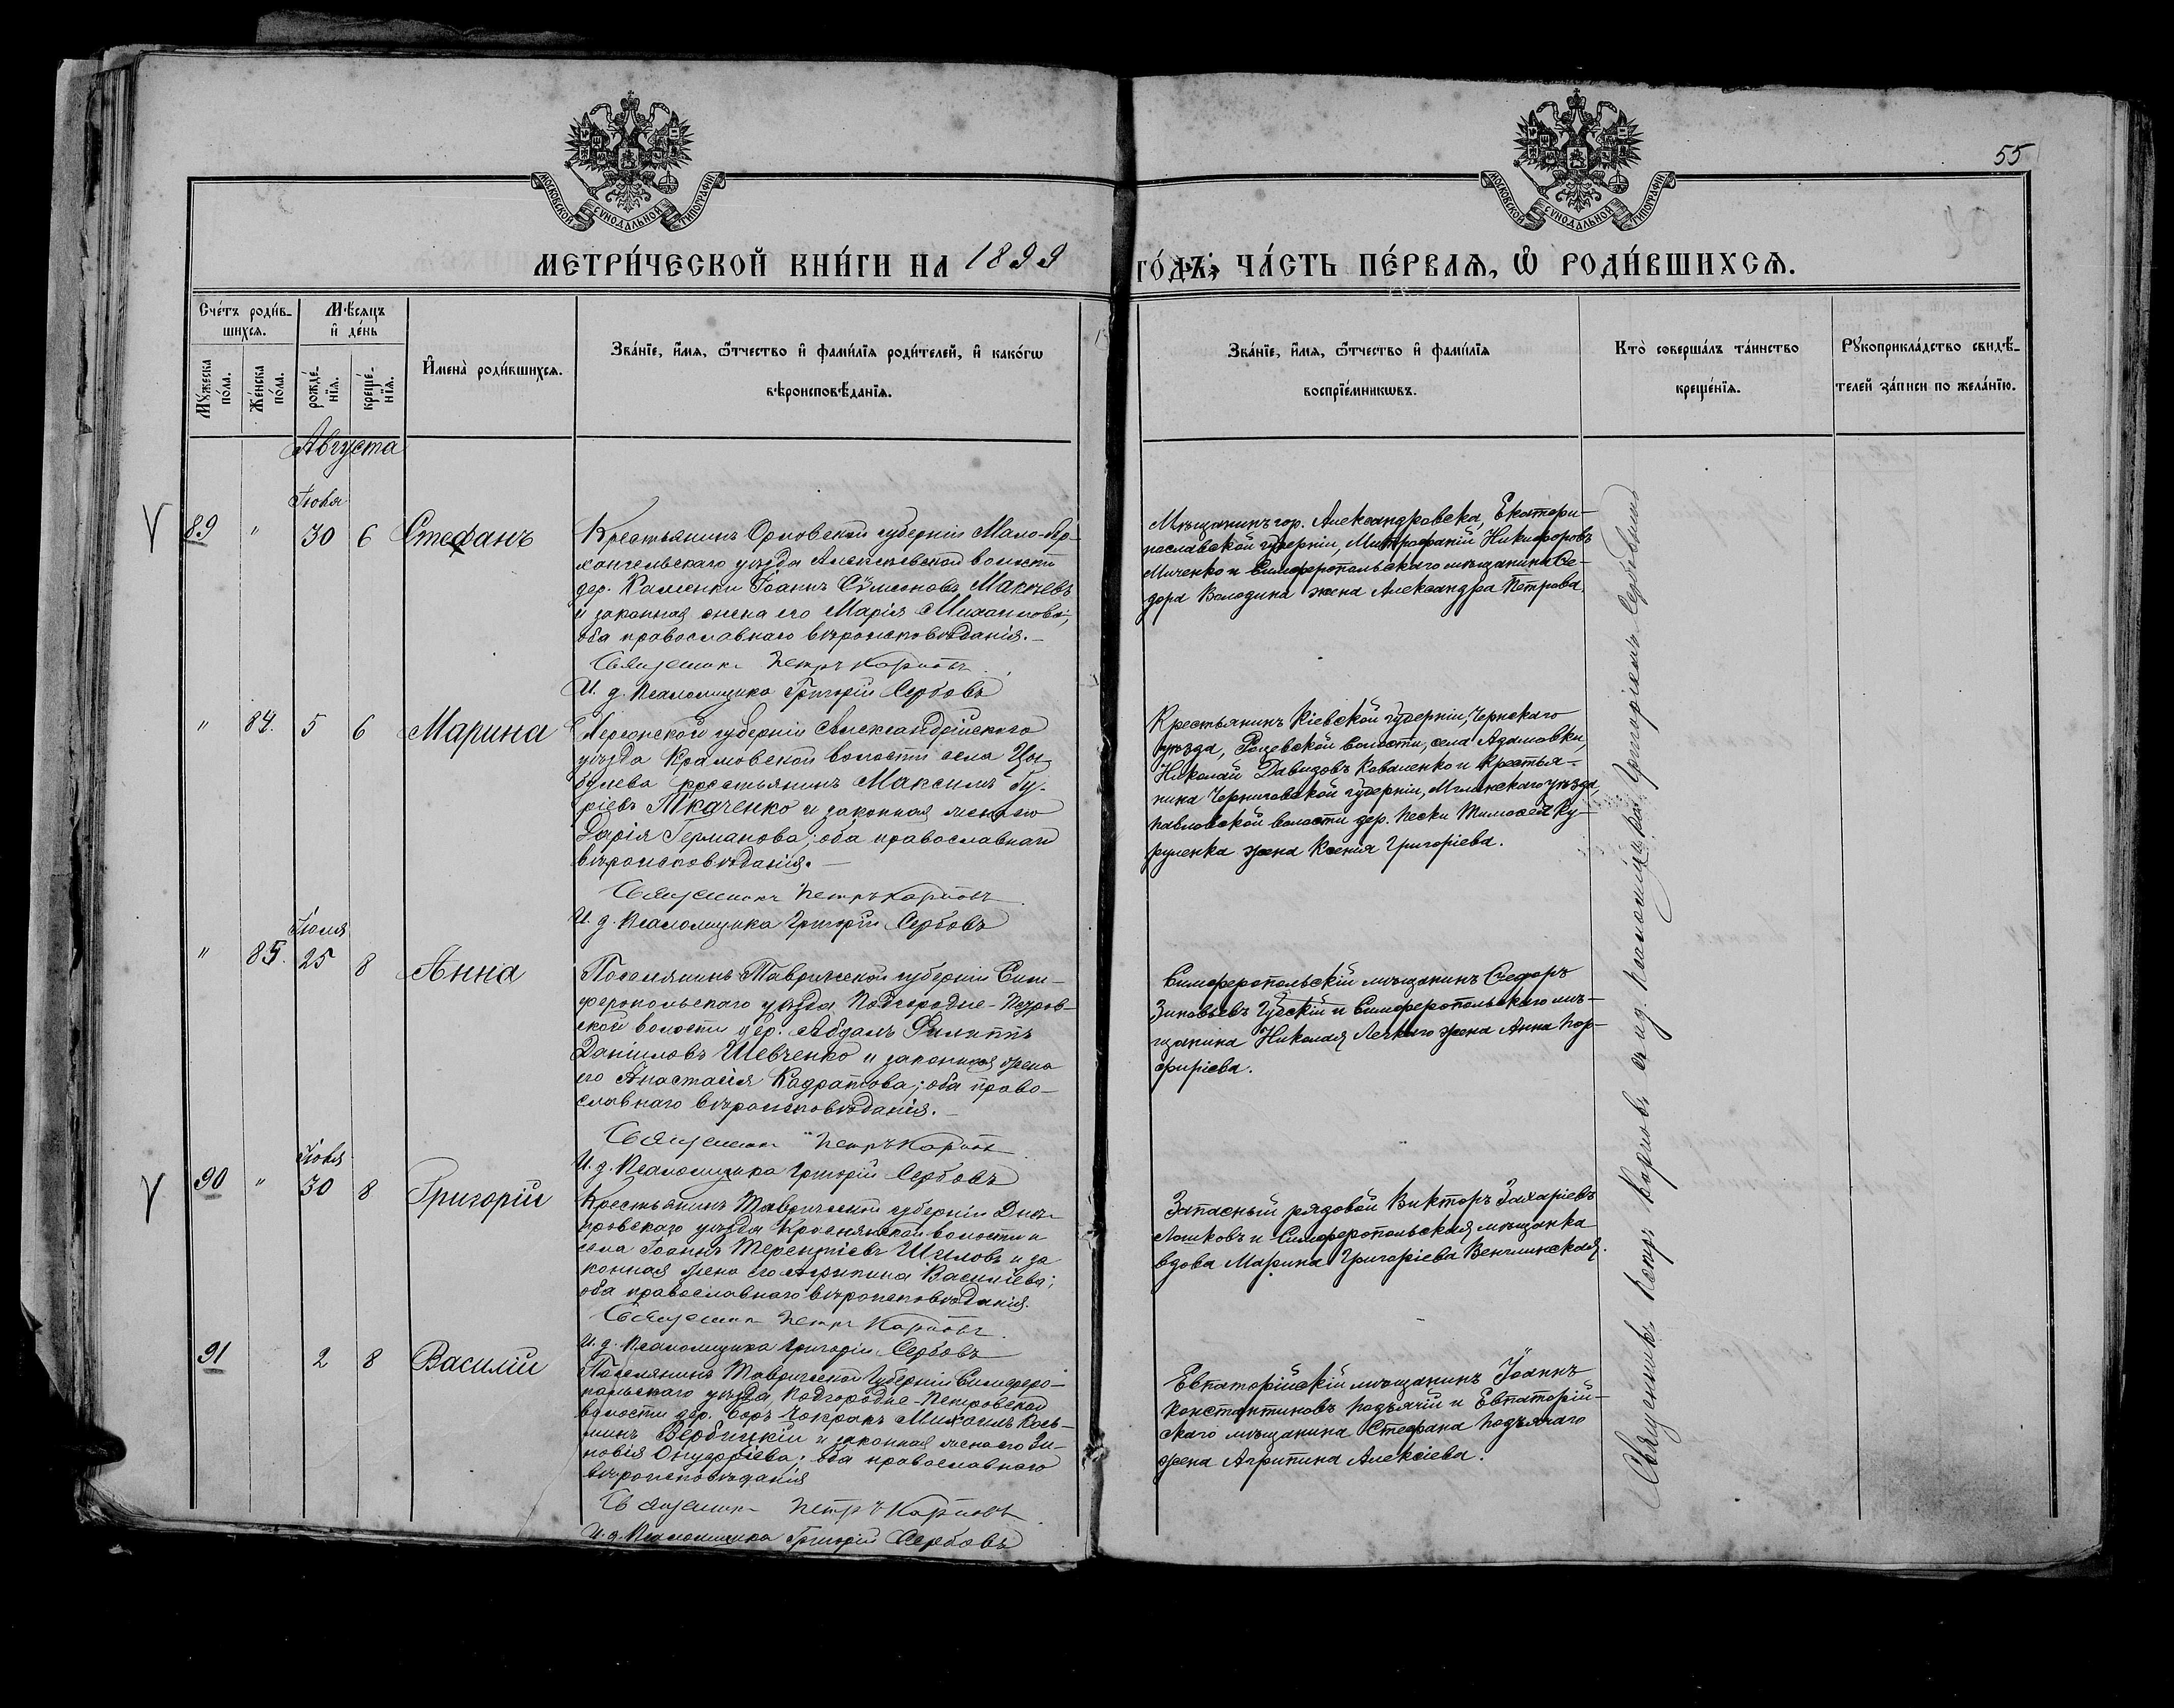 55
МОСКОВСКОЙ СУНОДАЛЬНОЙ ТИПОГРАФІИ
МОСКОВСКОЙ СУНОДАЛЬНОЙ ТИПОГРАФІИ
МЕТРИ́ЧЕСКОЙ КНИ́ГИ НА 1899
ГО́ДЪ, ЧА́СТЬ ПЕ́РВАЯ, Ѡ РОДИ́ВШИХСЯ.
Сче́тъ роди́в-
шихся.
Мѣ́сяцъ
и҆ де́нь
Му́жеска
по́ла.
Же́нска
по́ла.
рожде́-
нїя.
креще́-
нїя.
И҆мена̀ роди́вшихся.
Зва́нїе, и҆́мя, ѻ҆́тчество и҆ фамі́лїя роди́телей, и҆ како́гѡ
вѣроисповѣ́данїя.
Зва́нїе, и҆́мя, ѻ҆́тчество и҆ фамі́лїя
воспрїе́мникѡвъ.
Кто̀ соверша́лъ та́инство
креще́нїя.
Рꙋкоприкла́дство свидѣ́-
телей за́писи по жела́нїю.
Августа
Іюля
89 " 30 6 Стефанъ
Крестьянинъ Орловской губерніи Мало-Ар-
хангельскаго уѣзда Алексѣевской волости
дер. Каменки Іоаннъ Симоновъ Макѣевъ
и законная жена его Марія Михаилова;
оба православнаго вѣроисповѣданія.–
Священникъ Петръ Карповъ
И. д. Псаломщика Григорій Сербовъ
Мѣщанинъ гор. Александровска, Екатери-
нославской губерніи, Митрофаній Никифоровъ
Миченко и Симферопольскаго мѣщанина Ѳе-
дора Володина жена Александра Петрова.
" 84. 5 6 Марина
Херсонской губерніи Александрійскаго
уѣзда Красовской волости села Цы-
булева крестьянинъ Максимъ Гу-
ріевъ Ткаченко и законная жена его
Дарія Германова; оба православнаго
вѣроисповѣданія.–
Священникъ Петръ Карповъ
И. д. Псаломщика Григорій Сербовъ
Крестьянинъ Кіевской губерніи,
уѣзда, волости, села Адамовки,
Николай Давидовъ Коваленко и крестья-
нина Черниговской губерніи, Мглинскаго уѣзда,
Павловской волости дер. Пески Тимоѳея Ку-
руленка жена Ксенія Григоріева.
Іюля
" 85. 25 8 Анна
Поселянинъ Таврической губерніи Сим-
феропольскаго уѣзда Подгородне-Петров-
ской волости дер. Абдалъ Филиппъ
Даніиловъ Шевченко и законная жена
его Анастасія Кадратова; оба право-
славнаго вѣроисповѣданія.–
Священникъ Петръ Карповъ
И. д. Псаломщика Григорій Сербовъ
Симферопольскій мѣщанинъ Ѳеодоръ
Зиновьевъ Губскій и Симферопольскаго мѣ-
щанина Николая Легкаго жена Анна Пор-
фиріева.
Іюля
90 " 30 8 Григорій
Крестьянинъ Таврической губерніи Днѣ-
провскаго уѣзда волости и
села Іоаннъ Терентіевъ Шиловъ и за-
конная жена его Агрипина Василіева;
оба православнаго вѣроисповѣданія.
Священникъ Петръ Карповъ
И. д. Псаломщика Григорій Сербовъ
Запасный рядовой Викторъ Захаріевъ
Лошковъ и Симферопольская мѣщанка
вдова Марина Григоріева Венглинская.
91 2 8 Василій
Поселянинъ Таврической губерніи Симферо-
польскаго уѣзда Подгородне-Петровской
волости дер. Чокракъ Михаилъ Кось-
минъ Вербицкій и законная жена его Зи-
новія Онуфріева; оба православнаго
вѣроисповѣданія
Священникъ Петръ Карповъ
И. д. Псаломщика Григорій Сербовъ
Евпаторійскій мѣщанинъ Іоаннъ
Константиновъ Подъячій и Евпаторій-
скаго мѣщанина Стефана Подъячаго
жена Агрипина Алексіева.
Священникъ Петръ Карповъ съ и. д. псаломщика Григоріемъ Сербовымъ